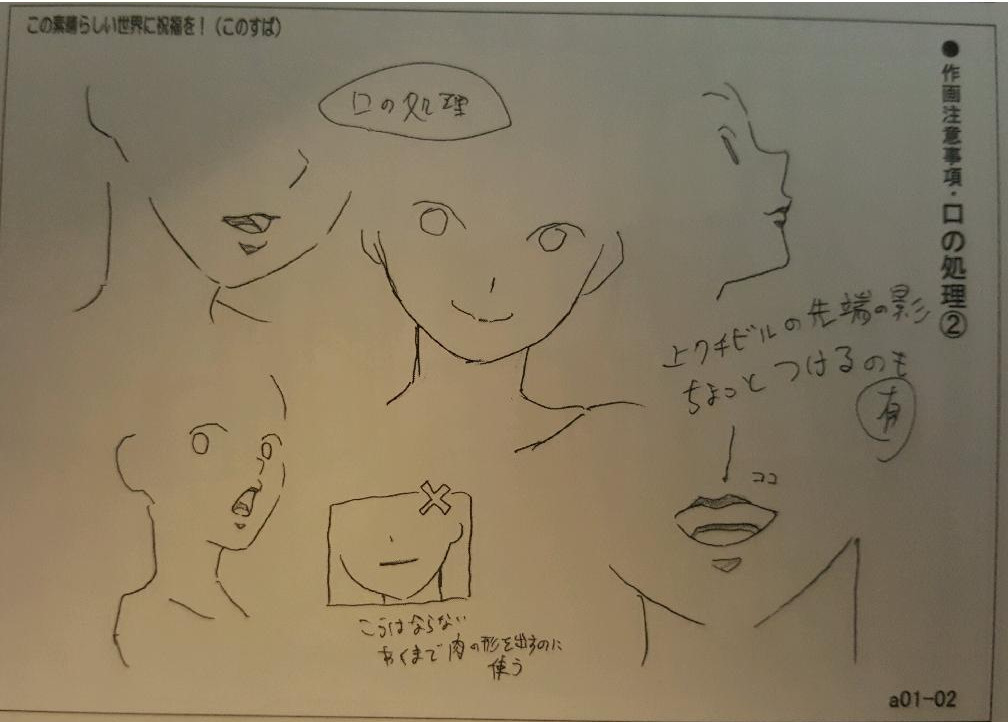 この素晴らしい世界に祝福を！（このすば）
●作画注意事項・口の処理②
口の処理
上クチビルの先端の影
ちょっとつけるのも
有
ココ
こうはならない
あくまで肉の形を出すのに
使う
a01-02